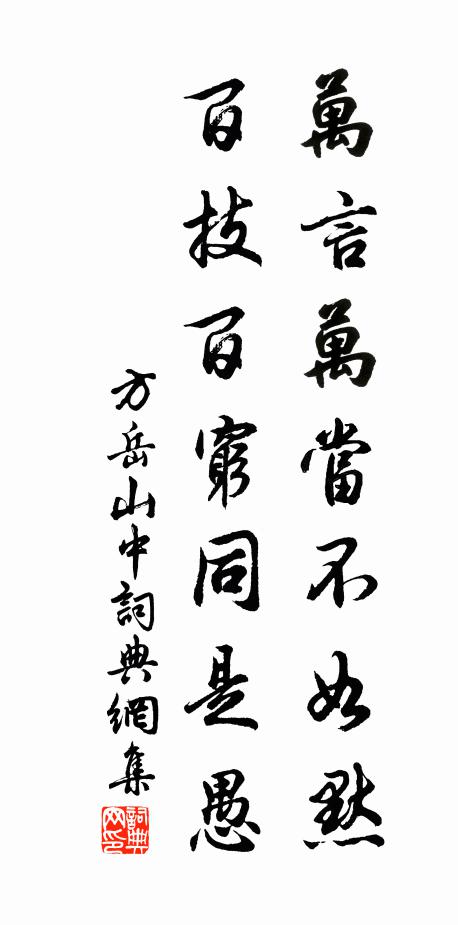 萬言萬當不如默
百技百窮同是愚
方岳山中詞典網集
詞典
網印